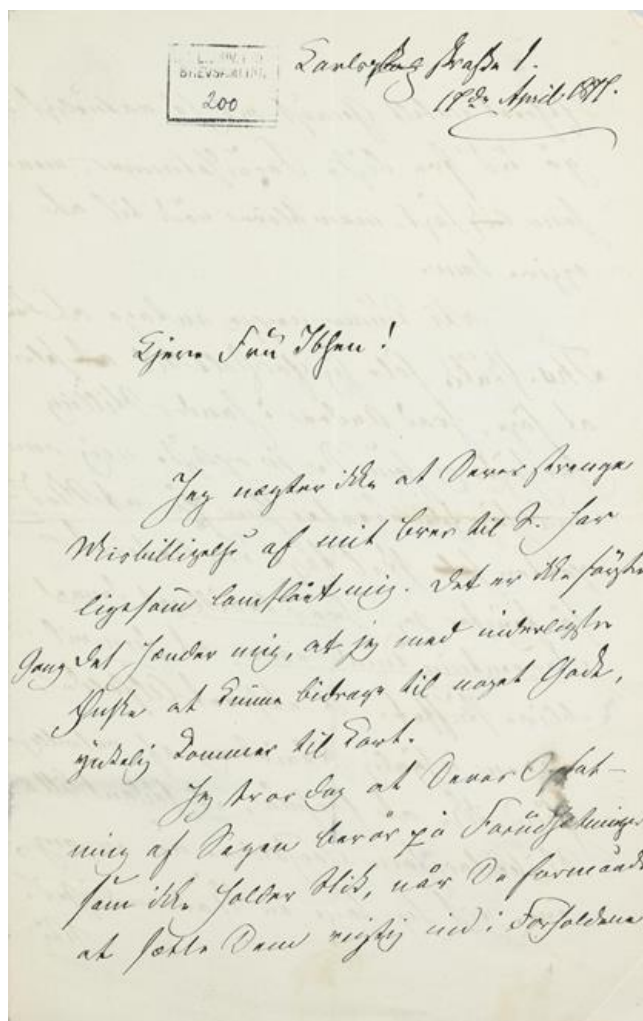 BREVSAMLING
200
Straße 1.
April
Kjere Frü Ibsen!
Jeg nægter ikke at Deres strenge
Misbilligelse af mit brev til S. har
ligesom lamslået mig. Det er ikke förste
Gang det hænder mig, at jeg med inderligste
Ønske at kunne bidrage til noget Godt,
ynkelig kommer til kort.
Jeg tror dog at Deres Opfat-
ning af Sagen berör på Forüdsætninger
som ikke holder Stik, når De formåede
at sætte Dem rigtig ind i Forholdene